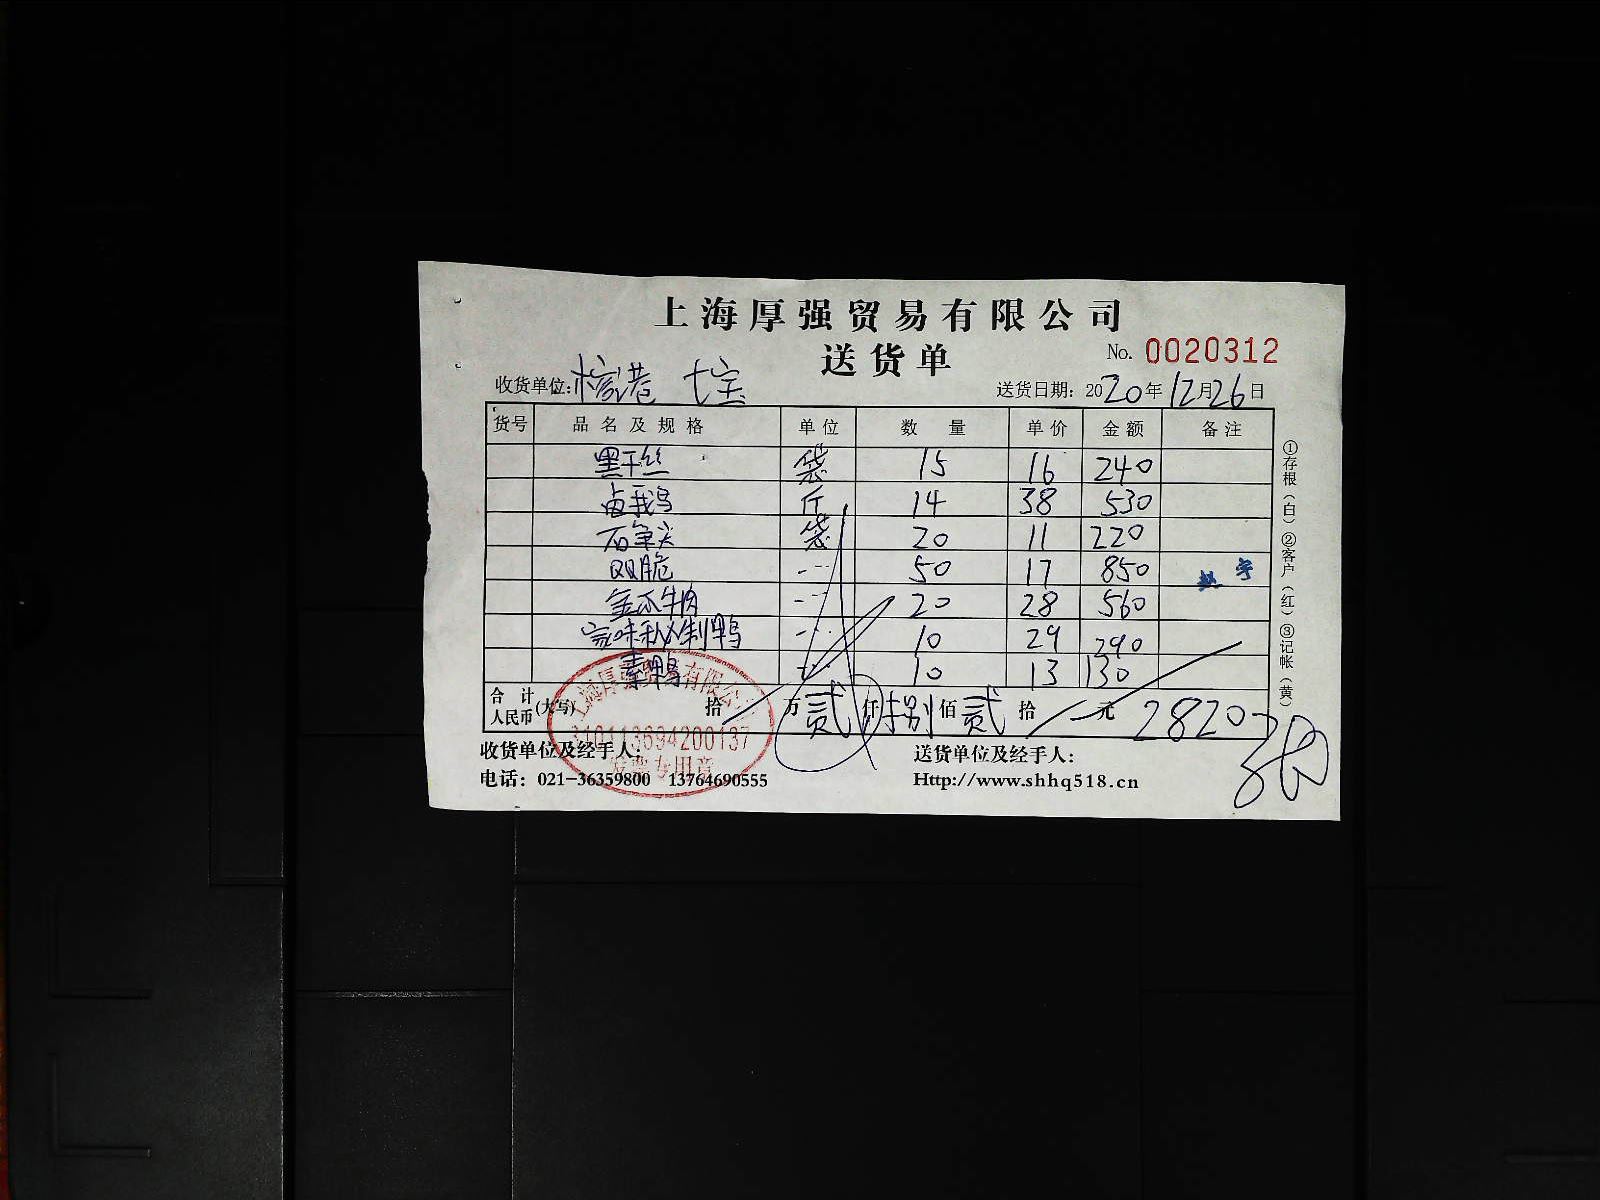 上海厚强贸易有限公司
送货单
No. 0020312
收货单位: 港 七宝
送货日期: 2020年12月26日
货号 品名及规格 单位 数量 单价 金额 备注
黑干丝 袋 15 16 240
卤我鸟 斤 14 38 530
石笋尖 袋 20 11 220
QQ脆 --- 50 17 850
金不牛肉 --- 20 28 560
家味秘制鸭 --- 10 29 290
素鸭 --- 10 13 130
合计人民币(大写) 拾 万 贰 仟 捌 佰 贰 拾 元 2820
收货单位及经手人:
送货单位及经手人:
电话: 021-36359800 13764690555
Http://www.shhq518.cn
①存根(白)②客户(红)③记帐(黄)
上海厚强贸易有限公司
310113694200137
发票专用章